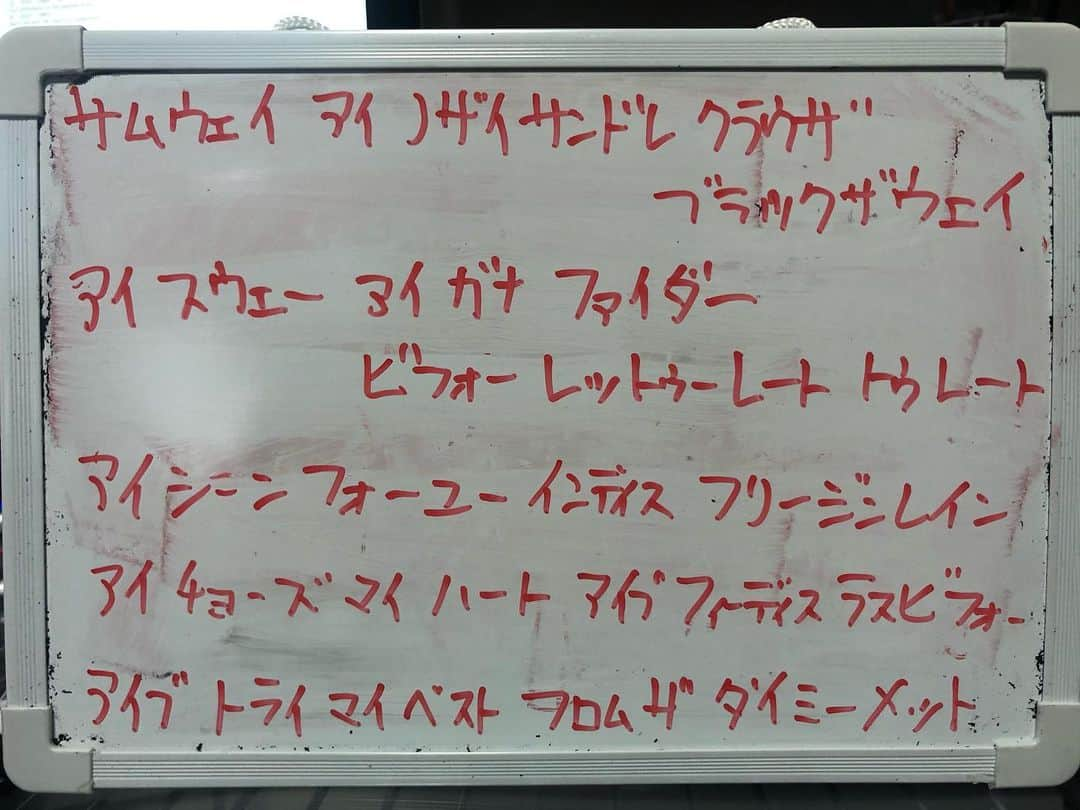 サムウェイ アイ ノザイサンドレ クラウザ
ブラックザウェイ
アイ スウェー アイ ガナ ファイダー
ビフォー レットゥーレート トゥレート
アイシーン フォーユー インディス フリージンレイン
アイ チョーズ マイ ハート アイブ フィーディス ラスビフォー
アイブ トライ マイ ベスト フロム ザ ダイミーメット